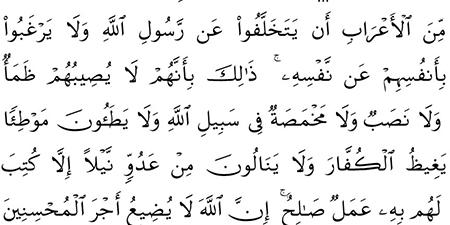 مِّنَ ٱلْأَعْرَابِ أَن يَتَخَلَّفُوا۟ عَن رَّسُولِ ٱللَّهِ وَلَا يَرْغَبُوا۟
بِأَنفُسِهِمْ عَن نَّفْسِهِۦ ۚ ذَٰلِكَ بِأَنَّهُمْ لَا يُصِيبُهُمْ ظَمَأٌ
وَلَا نَصَبٌ وَلَا مَخْمَصَةٌ فِى سَبِيلِ ٱللَّهِ وَلَا يَطَـُٔونَ مَوْطِئًا
يَغِيظُ ٱلْكُفَّارَ وَلَا يَنَالُونَ مِنْ عَدُوٍّ نَّيْلًا إِلَّا كُتِبَ
لَهُم بِهِۦ عَمَلٌ صَـٰلِحٌ ۚ إِنَّ ٱللَّهَ لَا يُضِيعُ أَجْرَ ٱلْمُحْسِنِينَ